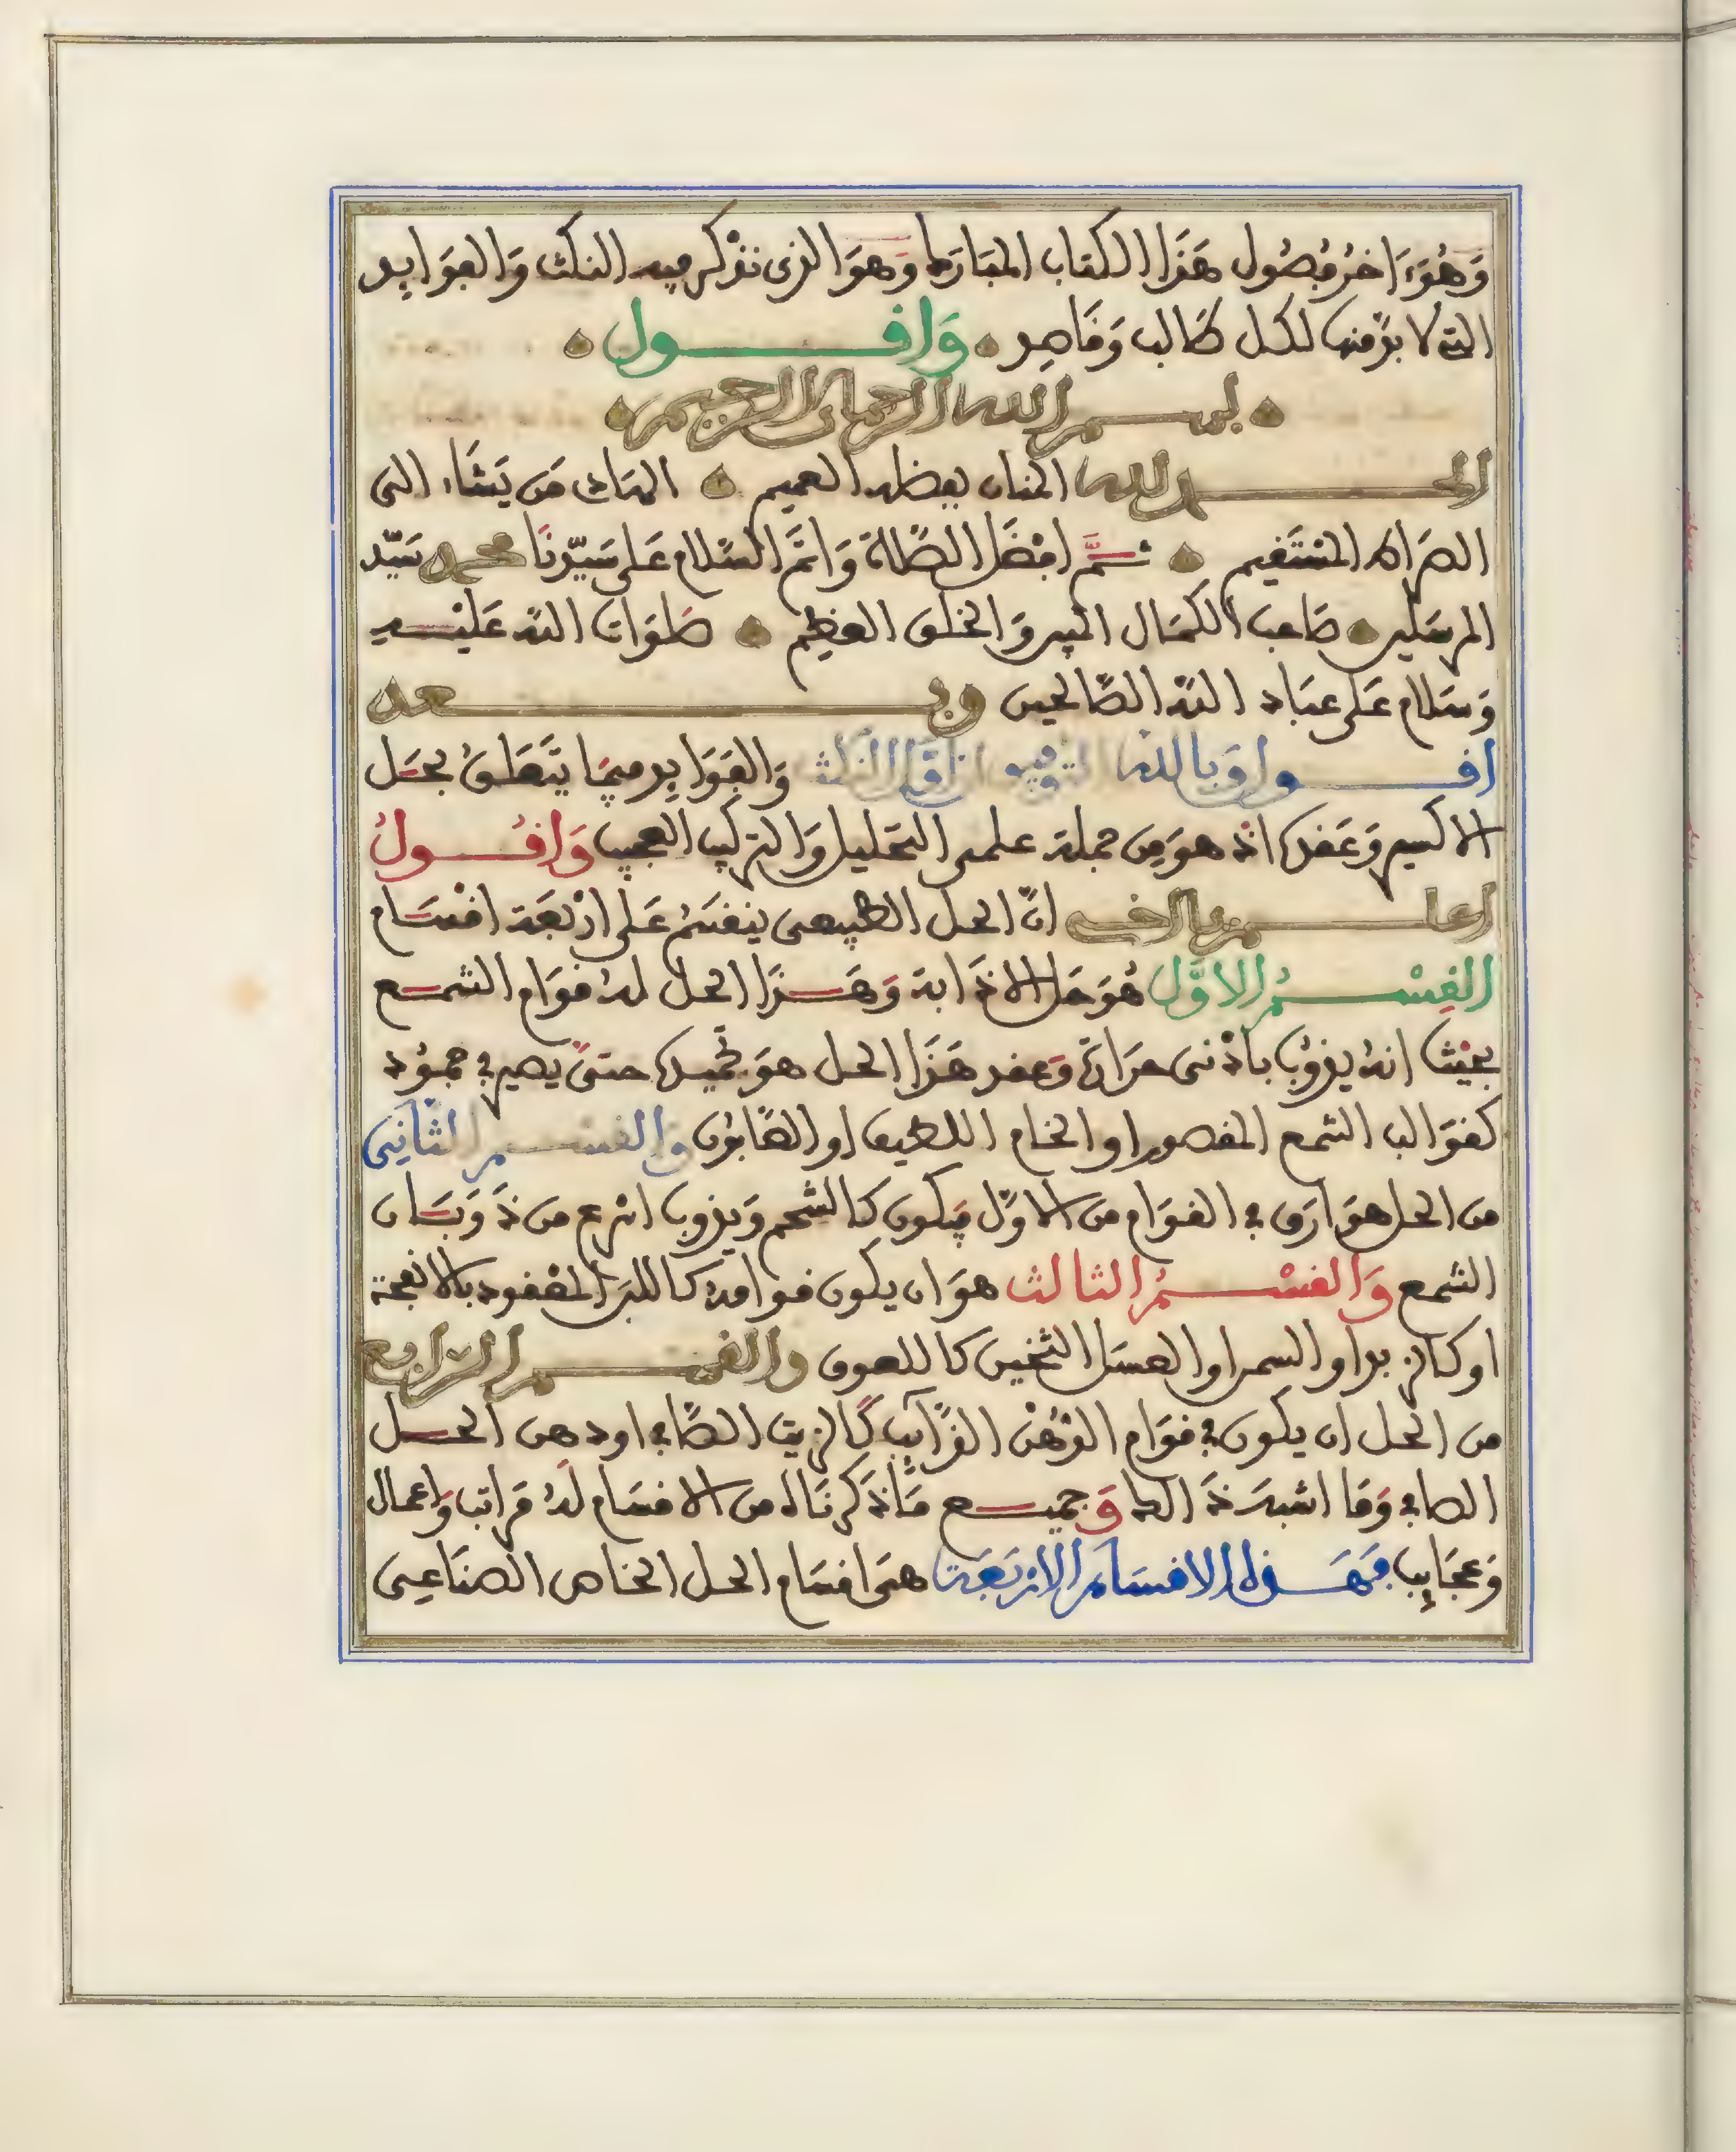 وَهُوَءَاخرُ فُصُول هَذَا الكتاب المبَارَك وَهوَ الذى نذْكر فيه النكث وَالفوَايد
التى لا بدّ منها لكل طَالب وَقَاصد وَاقـــول
بســم الله الرحمان الرحيم
الحـــمد لله المنان بفضله العميم الهَاد مَن يَشَاء الى
الصرَاط المسْتَقيم ثــمَّ افضَل الصّلاة وَاتمّ السّلام عَلى سَيّدنَا محمد سَيّد
المرسَلين صَاحب الكمَال المبين وَالخلق العَظِيم صَلوَات اللّه عَليْــه
وَسَلام عَلى عبَاد اللّه الصّالحين وبـــعد
اقـــول وَبالله التوفيو انّ النكث وَالفوَايد فيمَا يتَعَلق بحَل
الاكسير وَعَقدها اذ هوَ مِن جملة علمى التحَليل وَالتركيب العجيب وَاقُـــولُ
اعلـــم يا اخـى انّ الحل الطبيعى ينقسَمُ عَلى ارْبعَة اقسَــام
القِسْـــمُ الاوَّل هُوَ حَل الاذَابة وَهَــذَا الحل لهُ قوَام الشمــع
بحَيْث انهُ يذوبُ باذنى حرَارَة وَعقد هَذَا الحل هوَ تجميدها حتىّ يصير فى جموُد
كقوَالب الشمع المقصور او الخام اللطيف او الصّابُون وَالقســم الثّانِى
من الحل هوَ ارَق فى القوَام من الاوّل فيَكون كالشحم وَيذوب اسرع من ذَوَبَــان
الشمع وَالقسْـــمُ الثالث هوَ ان يكون قوامهُ كاللبَن المَعْقود بالانفحة
او كالزبد او السمن او العسَل الثخين كاللعوق والقســم الرّابع
من الحل ان يكون فى قوَام الدّهْن الذّآيب كَالزيت الصَّافى او دهن الحــل
الصافى وَمَا اشبهَ ذَالك وَجميــع مَا ذَكرنَاه من الاقسَام لَهُ مَرَاتب وَاعمال
وَعجَايب فَهَــذه الاقسَام الارْبَعَة هىَ اقسَام الحل الخاص الصنَاعِى